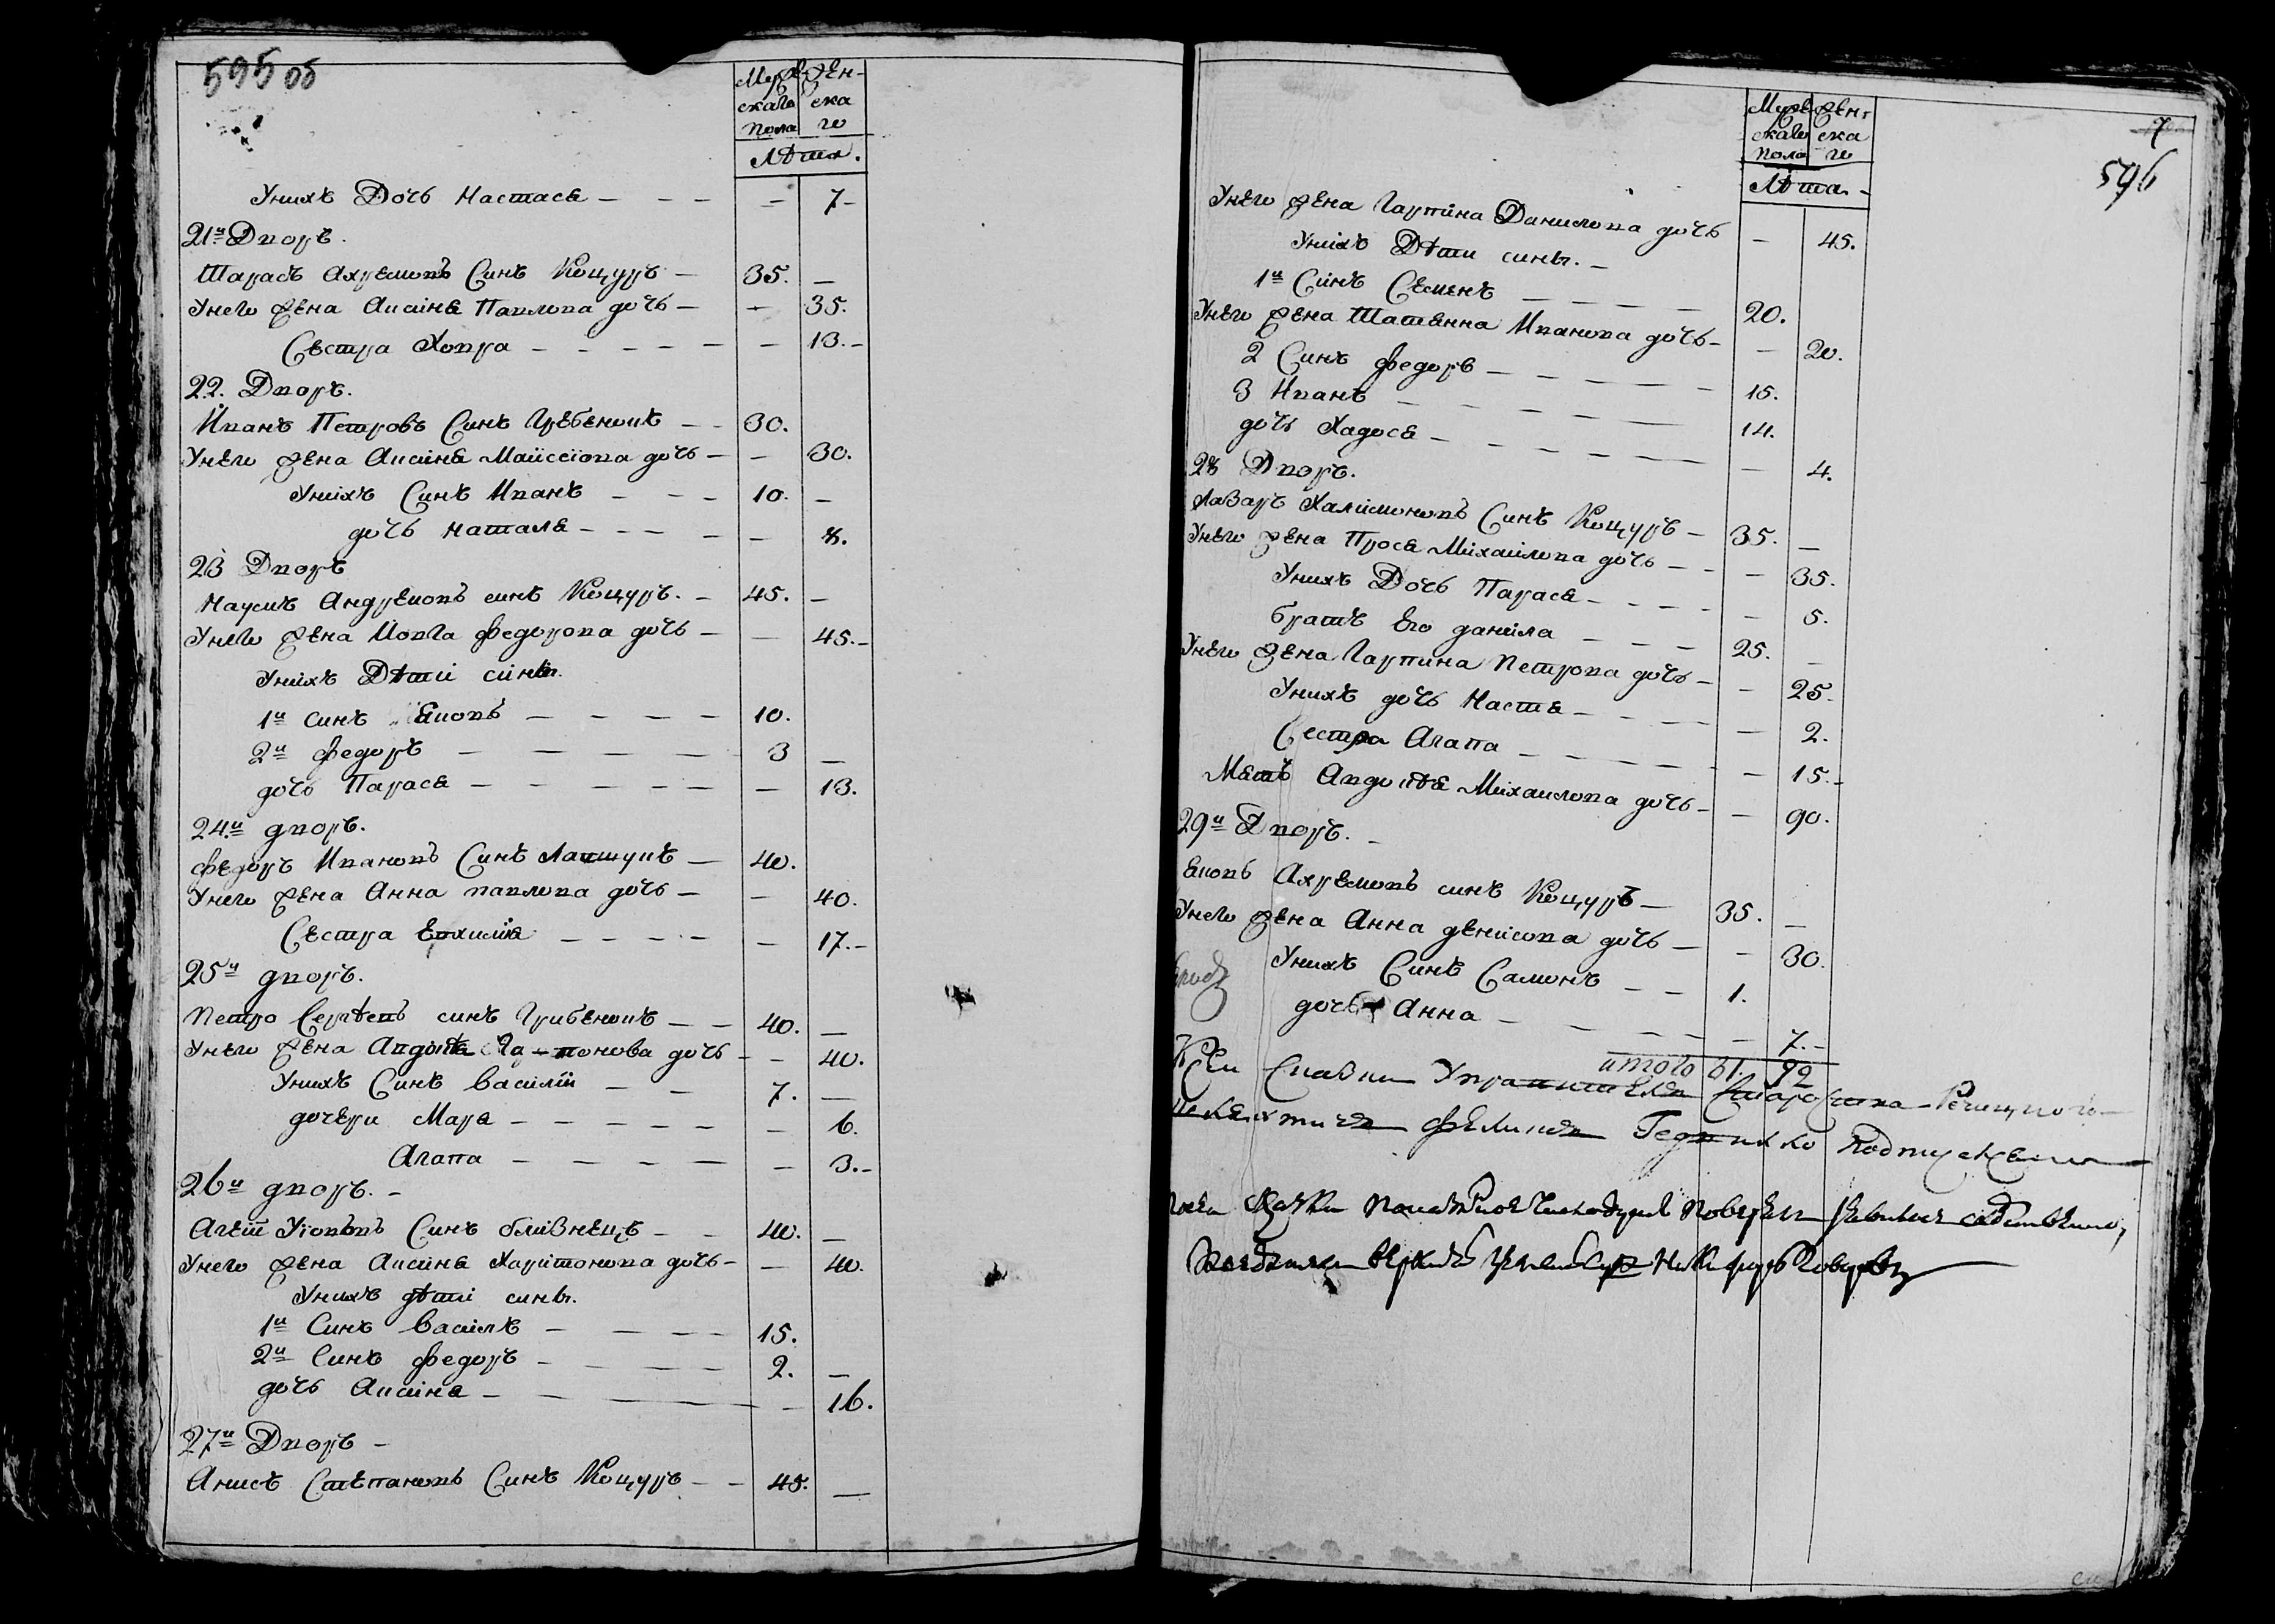 595 об
Мужескаго пола Женскаго
Лѣта.
Унихъ Дочь Настася — 7
21й Дворъ.
Тарасъ Ахремовъ Синъ Коцуръ — 35.
Унего жена Аксиня Павлова дочь — 35.
Сестра Ховра — 13.
22. Дворъ.
Иванъ Петровъ Синъ Гребеникъ — 30.
Унего жена Аксиня Маисеіова дочь — 30.
Унихъ Синъ Иванъ — 10.
дочь Наталя — 8.
23 Дворъ
Наумъ Андреіовъ синъ Коцуръ. — 45.
Унего жена Іовга Федорова дочь — 45.
Унихъ Дѣти сины.
1й синъ Яковъ — 10.
2й Федоръ — 3
дочь Парася — 13.
24й дворъ.
Федоръ Ивановъ Синъ Лапшукъ — 40.
Унего жена Анна павлова дочь — 40.
Сестра Евхимія — 17.
25й дворъ.
Петро Сергѣевъ синъ Грибеникъ — 40.
Унего жена Авдотя дочь — 40.
Унихъ Синъ Василій — 7.
дочери Маря — 6.
Агапа — 3.
26й дворъ.
Синъ близнецъ — 40.
Унего жена Аксиня Харитонова дочь — 40.
Унихъ дѣти сины.
1й Синъ Василь — 15.
2й Синъ Федоръ — 2.
дочь Аксиня — 16.
27й Дворъ
Анисъ Степановъ Синъ Коцуръ — 45.
7
596
Мужескаго пола Женскаго
Лѣта
Унего жена Гарпина Данилова дочь — 45.
Унихъ Дѣти сины.
1й Синъ Семенъ — 20.
Унего жена Татянна Иванова дочь — 20.
2 Синъ Федоръ — 15.
3 Иванъ — 14.
дочь Хадося — 4.
28 Дворъ.
Лазаръ Халимоновъ Синъ Коцуръ — 35.
Унего жена Прося Михаилова дочь — 35.
Унихъ Дочь Парася — 5.
братъ Его данила — 25.
Унего жена Гарпина Петрова дочь — 25.
Унихъ дочь Настя — 2.
Сестра Агапа — 15.
Мать Авдотя Михаилова дочь — 90.
29й Дворъ.
Яковъ Ахремовъ синъ Коцуръ — 35.
Унего жена Анна денисова дочь — 30.
Унихъ Синъ Самонъ — 1.
дочь Анна — 7.
итого 61. 92